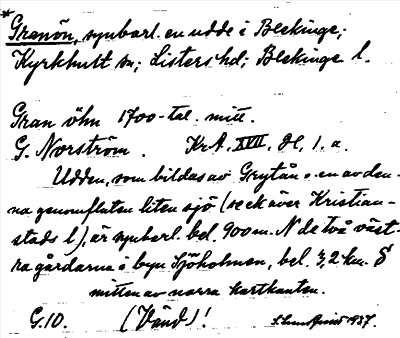 *Granön, synbarl. en udde i Blekinge;
Kyrkhult sn; Listers hd; Blekinge l.
Gran öhn 1700-tal. mitt.
G. Norström. KrA. XVII, Bl, 1. a.
Udden, som bildas av Grytån o. en av den-
na genomfluten liten sjö (se ek över Kristian-
stads l), är synbarl. bel. 900 m. N de två väst-
ra gårdarna i byn Sjöholmen, bel. 3,2 km. S
mitten av norra kartkanten.
G.10. (Vänd)! 1937.